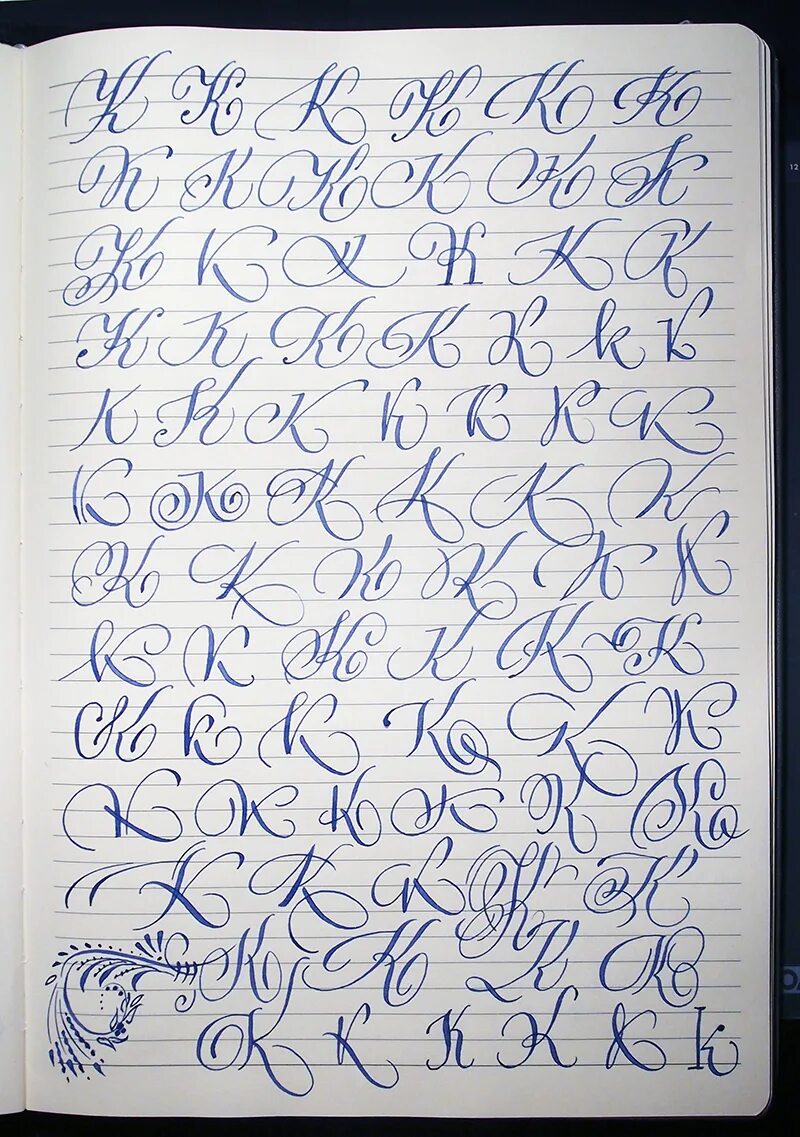 K K K K K K
K K K K K K
12
K K K K K K
K K K K K k k
K K K K K K K
K K K K K K
K K K K K K
k K K K K K
K k K K K K
K K K K K K
K K K K K
K K K K
K K K K K k